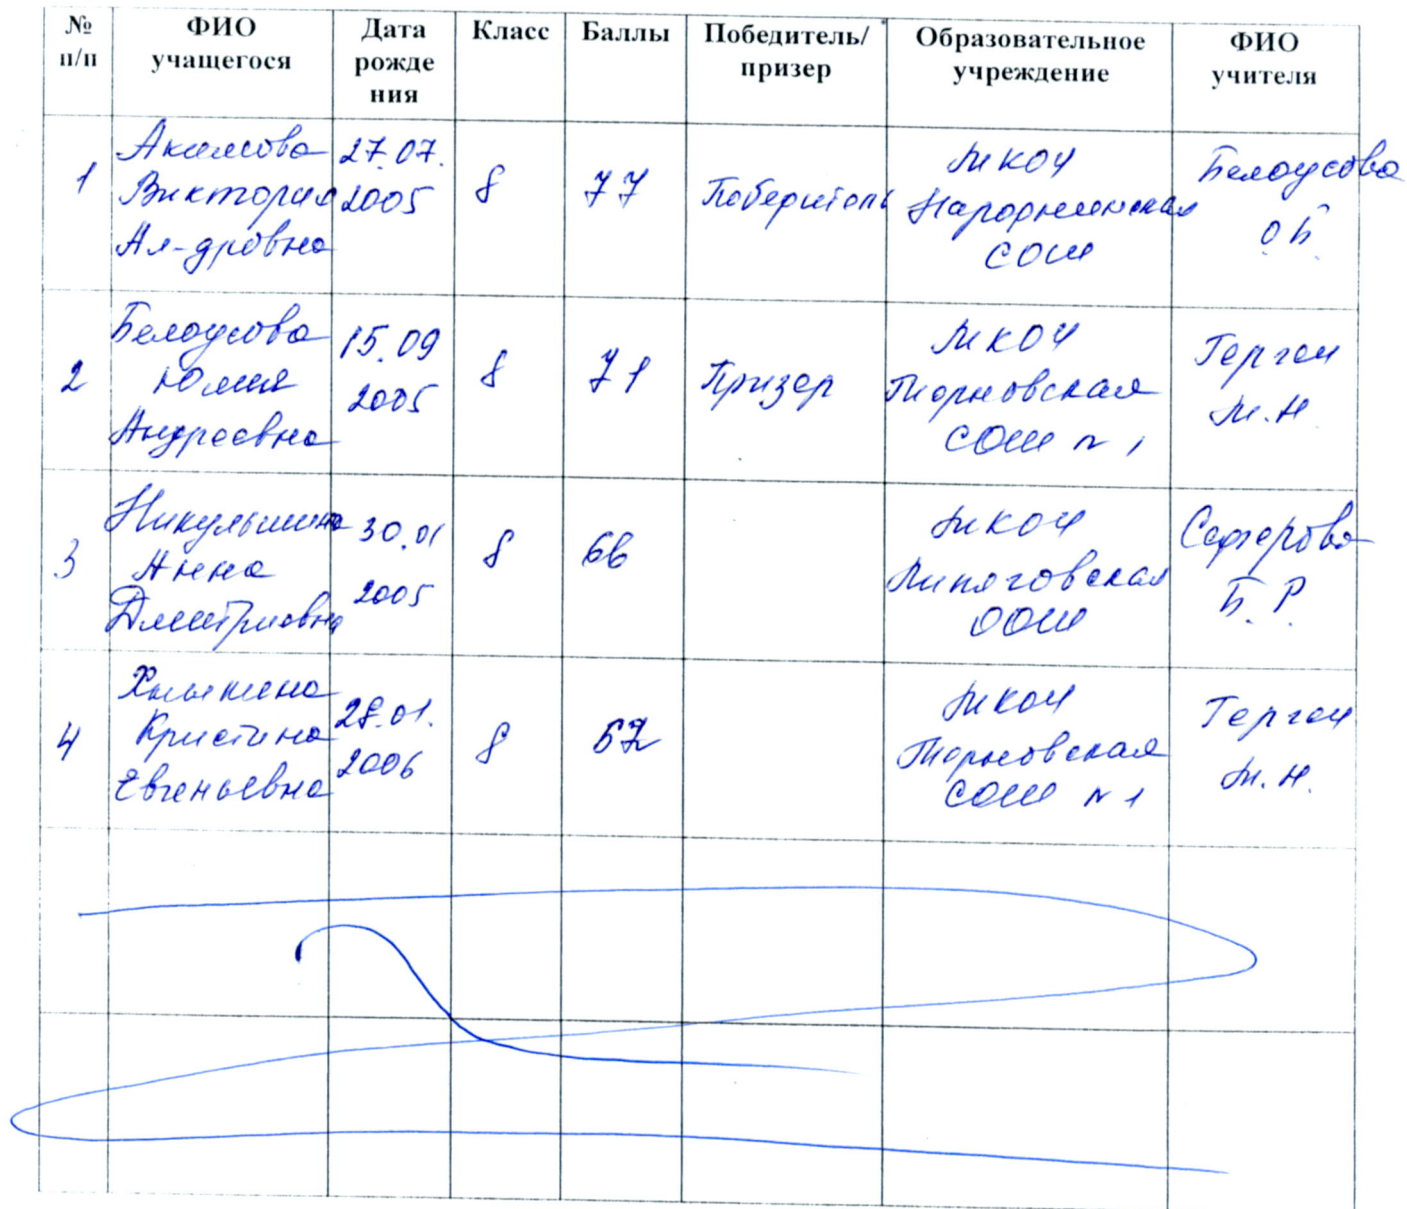 № п/п
ФИО учащегося
Дата рожде ния
Класс
Баллы
Победитель/ призер
Образовательное учреждение
ФИО учителя
1
Акимова
Виктория
Ал-дровна
27.07.
2005
8
77
Победитель
МКОУ
СОШ
Белоусова
О.Б.
2
Белоусова
Юлия
Андреевна
15.09
2005
8
71
Призер
МКОУ
Терновская
СОШ N 1
Герген
М.Н.
3
Никульшина
Анна
Дмитриевна
30.01
2005
8
66
МКОУ
Липяговская
ООШ
Сеферова
Б.Р.
4
Кристина
Евгеньевна
28.01.
2006
8
МКОУ
Терновская
СОШ N 1
Герген
М.Н.